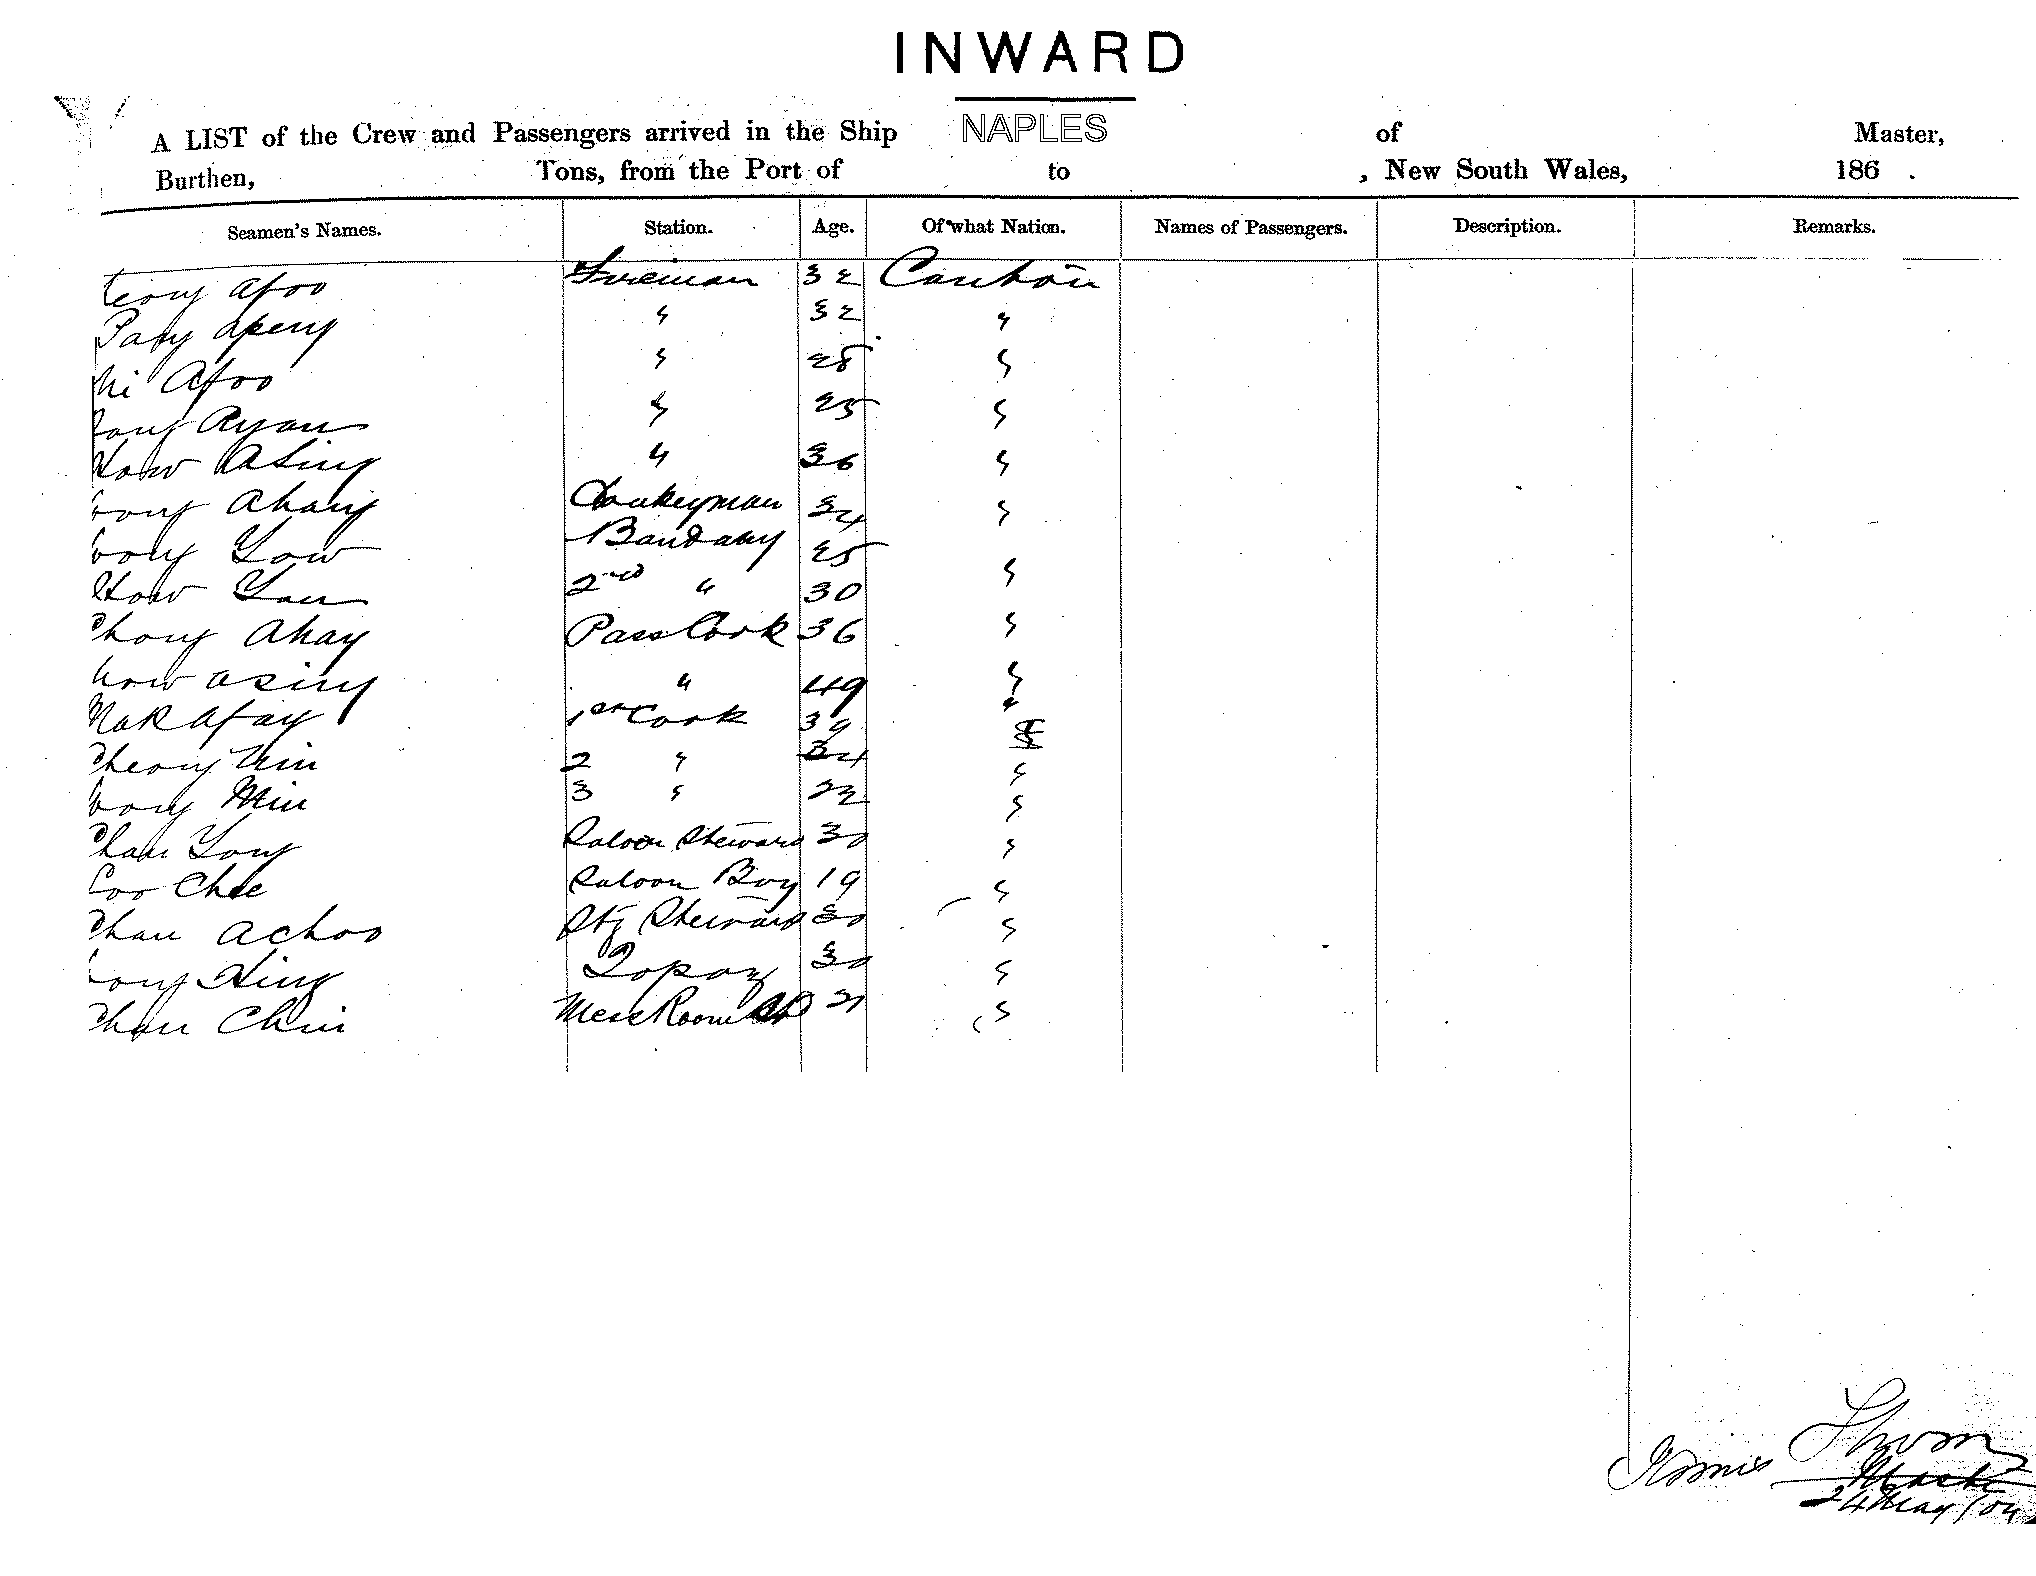 INWARD
A LIST of the Crew and Passengers arrived in the Ship NAPLES of Master,
Burthen, Tons, from the Port of to , New South Wales, 186 .
Seamen's Names. Station. Age. Of what Nation. Names of Passengers. Description. Remarks.
Afoo Fireman 32 Canton
apeng " 32 "
Afoo " 28 "
Ayan " 25 "
Asing " 36 "
Ahang Donkeyman 34 "
Yow 25 "
Yau 2nd " 30 "
Chong Ahay Pass Cook 36 "
asing " 49 "
Mak Afay 1st Cook 39 "
Cheong 2 " 34 "
Min 3 " 22 "
Chan Yong Saloon Steward 30 "
Chee Saloon Boy 19 "
Chan Achoo Stg Steward 30 "
Topaz 30 "
Chan Chin Mess Room 21 "
Thom
Master
24 May /04